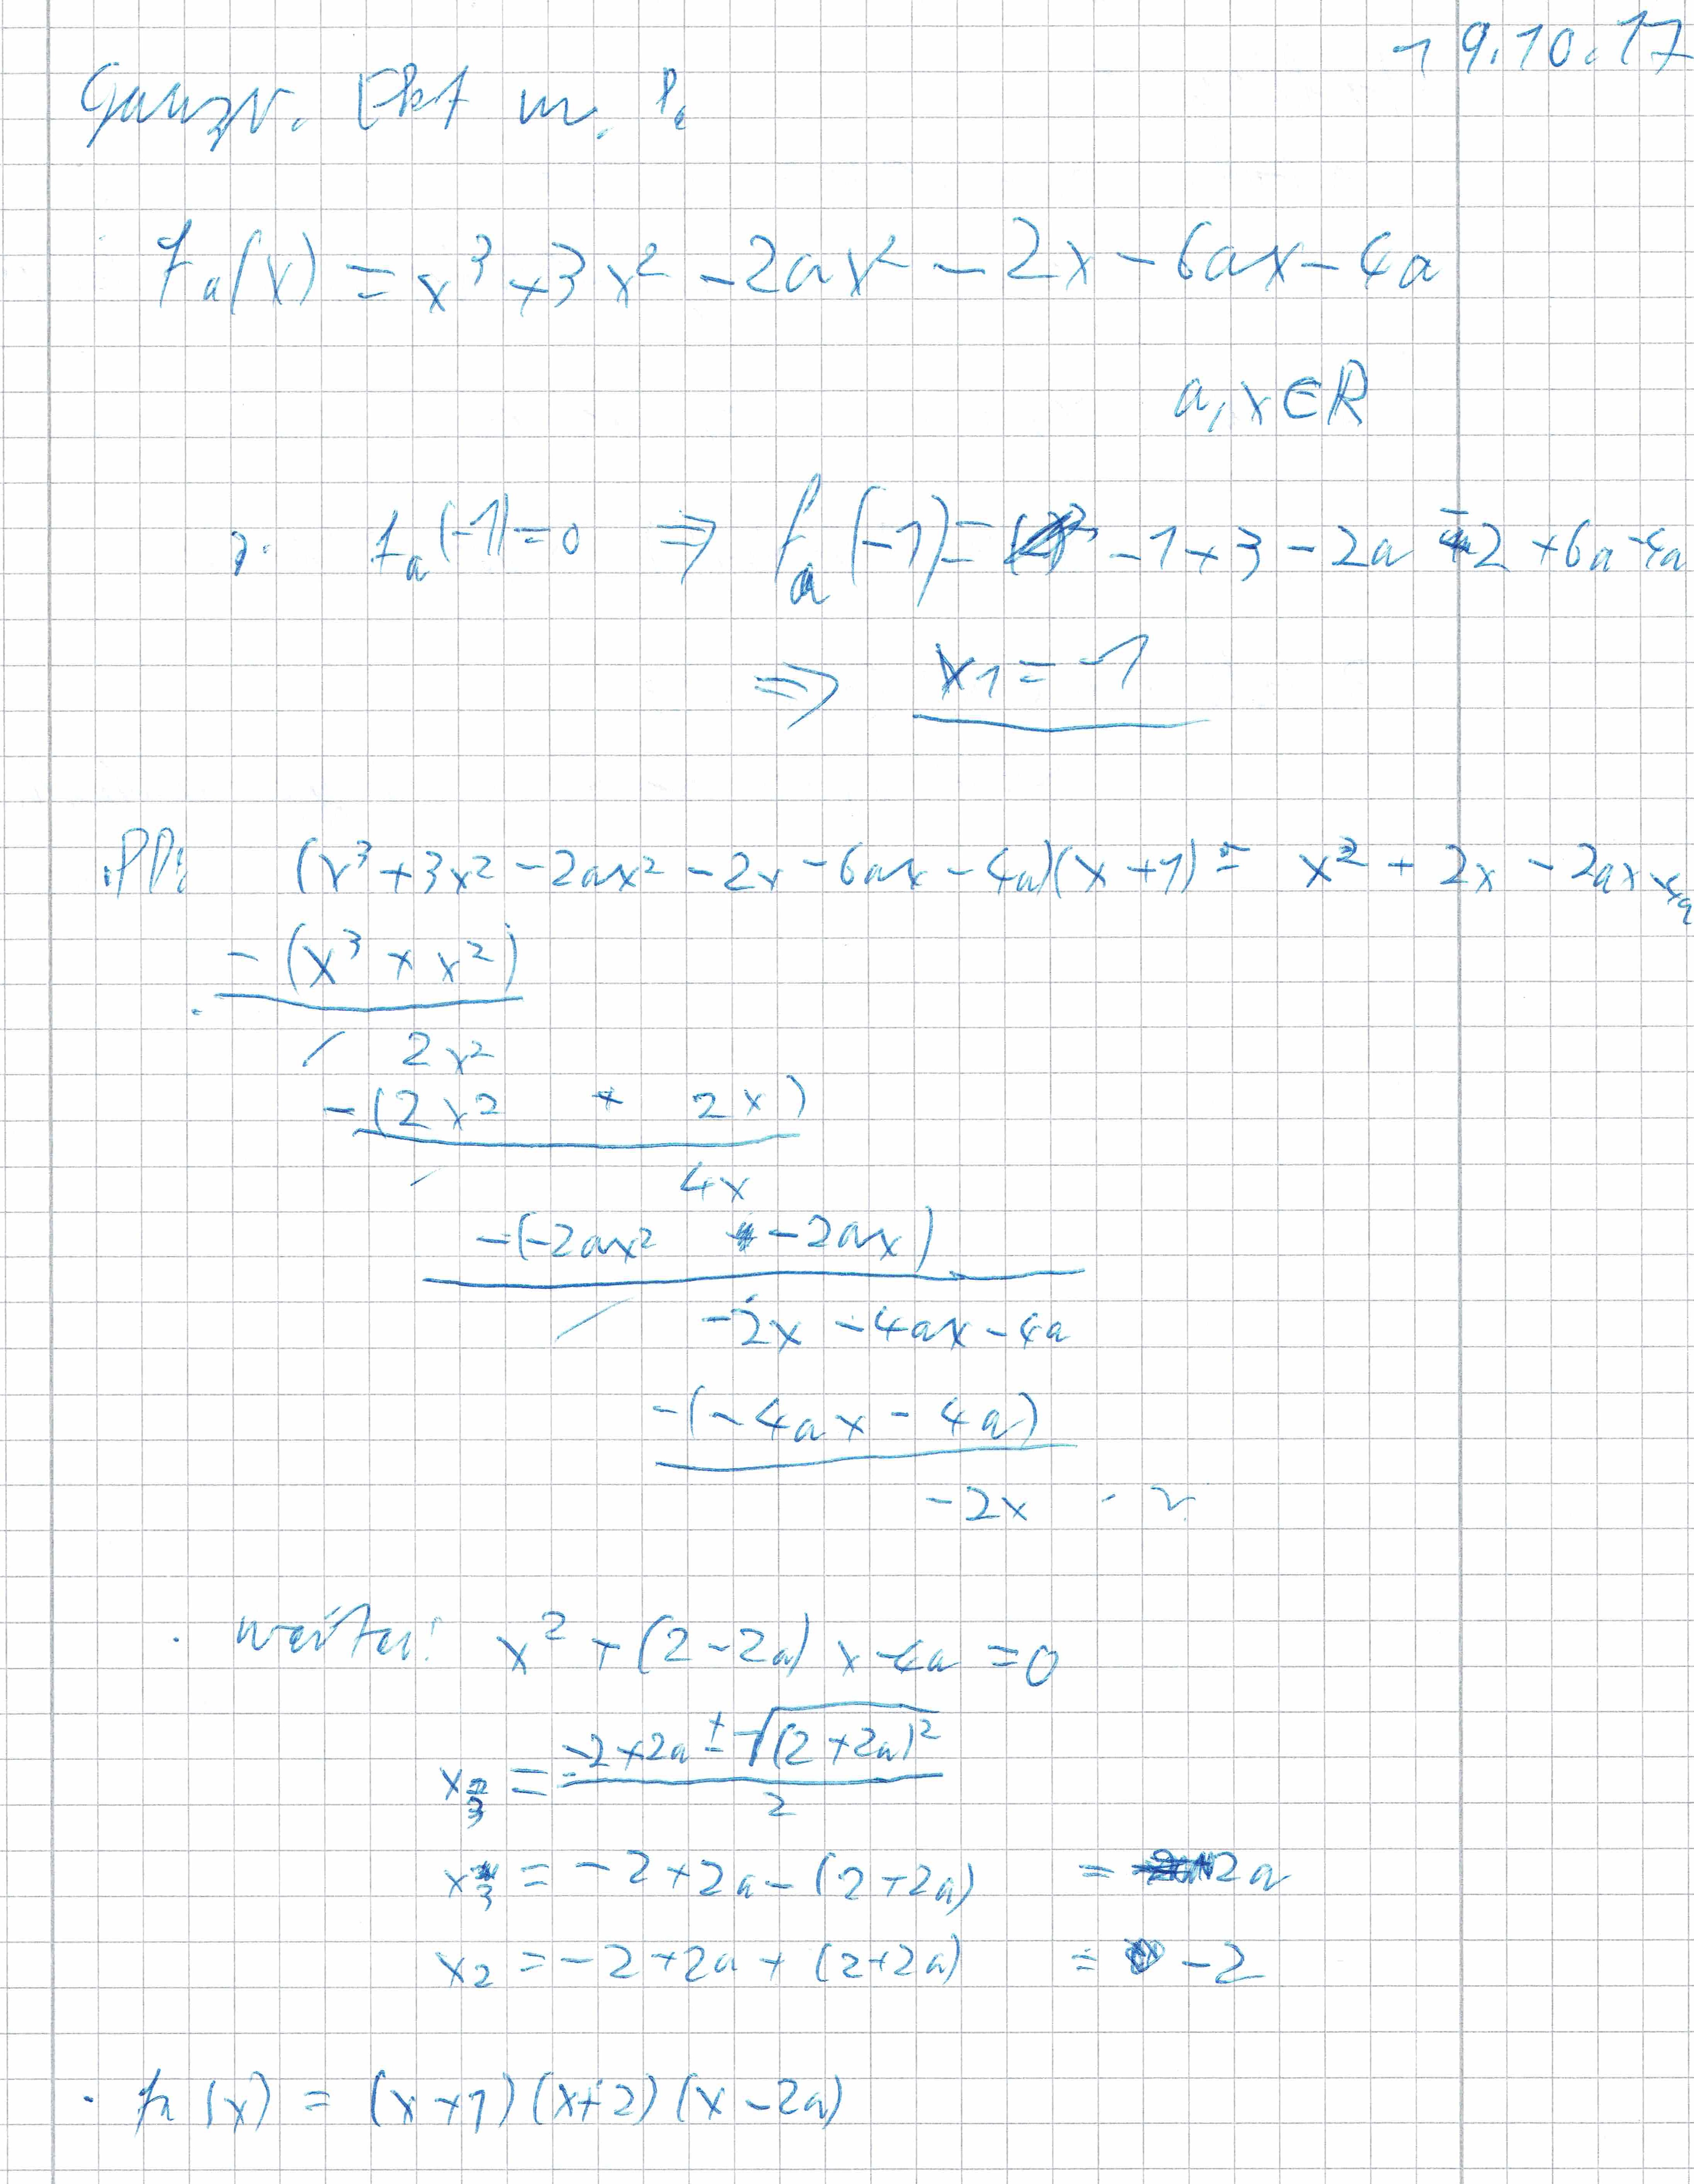 19.10.17
Ganzr. Fkt m. P.
f_a(x) = x³ + 3x² - 2ax² - 2x - 6ax - 4a
a, x ∈ ℝ
f_a(-1) = 0 ⇒ f_a(-1) = -1 + 3 - 2a - 2 + 6a - 4a
⇒ x₁ = -1
PD: (x³ + 3x² - 2ax² - 2x - 6ax - 4a)(x + 1) = x² + 2x - 2ax - 4a
- (x³ + x²)
/ 2x²
- (2x² + 2x)
/ 4x
- (-2ax² - 2ax)
/ -2x - 4ax - 4a
- (-4ax - 4a)
-2x - 2
weiter: x² + (2 - 2a) x - 4a = 0
x₂/₃ = (-2 + 2a ± √((2 + 2a)²)) / 2
x₃ = -2 + 2a - (2 + 2a) = 2a
x₂ = -2 + 2a + (2 + 2a) = -2
f_a(x) = (x + 1)(x + 2)(x - 2a)